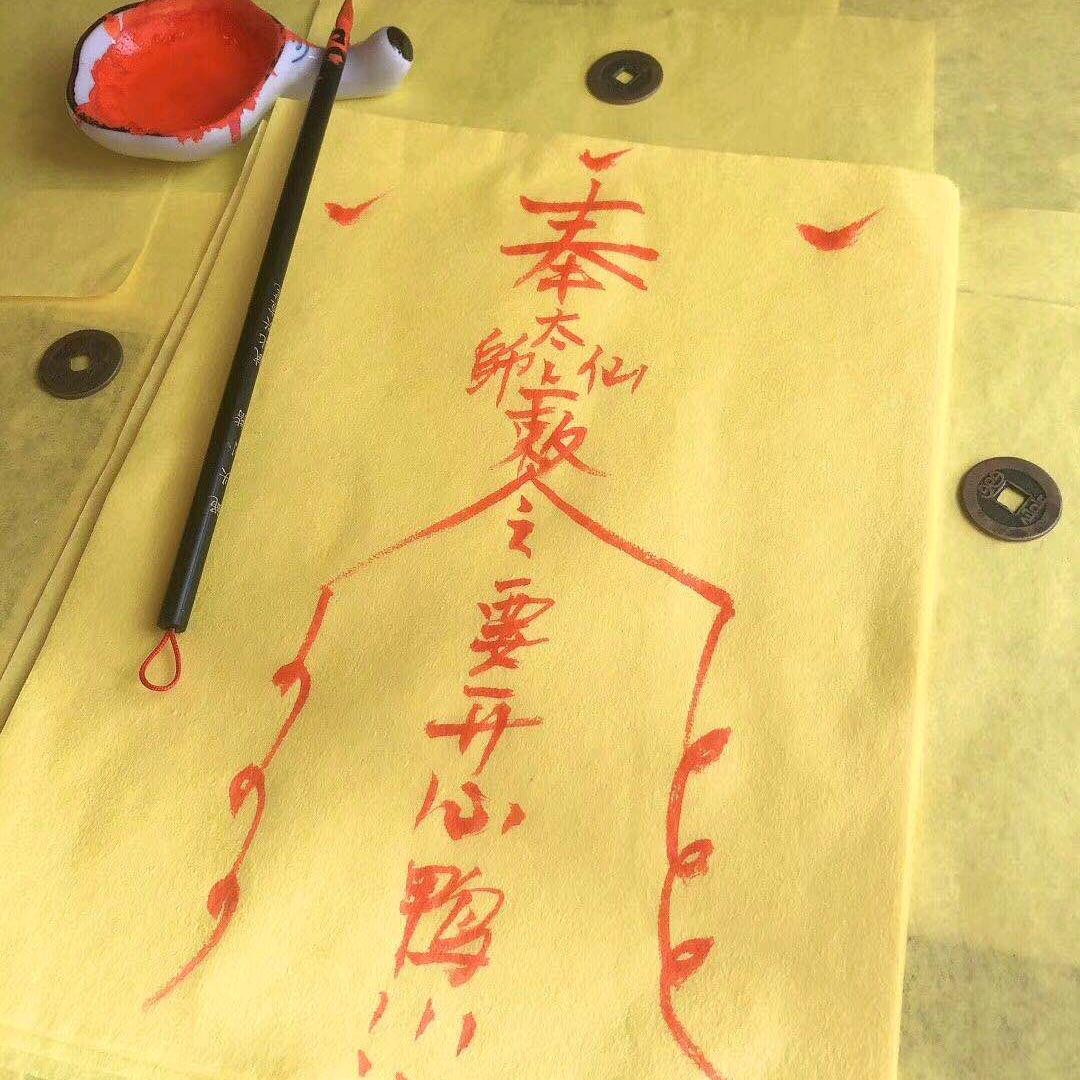 奉
太
師 仙
敕
令
要
开
心
鴨